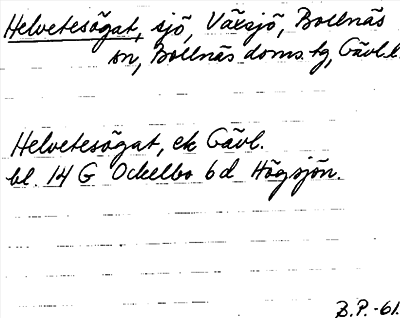 Helvetesögat, sjö, Växsjö, Bollnäs
sn, Bollnäs doms. tg, Gävl.l.
Helvetesögat, ek Gävl.
bl. 14 G Ockelbo 6d Högsjön.
B.P.-61.